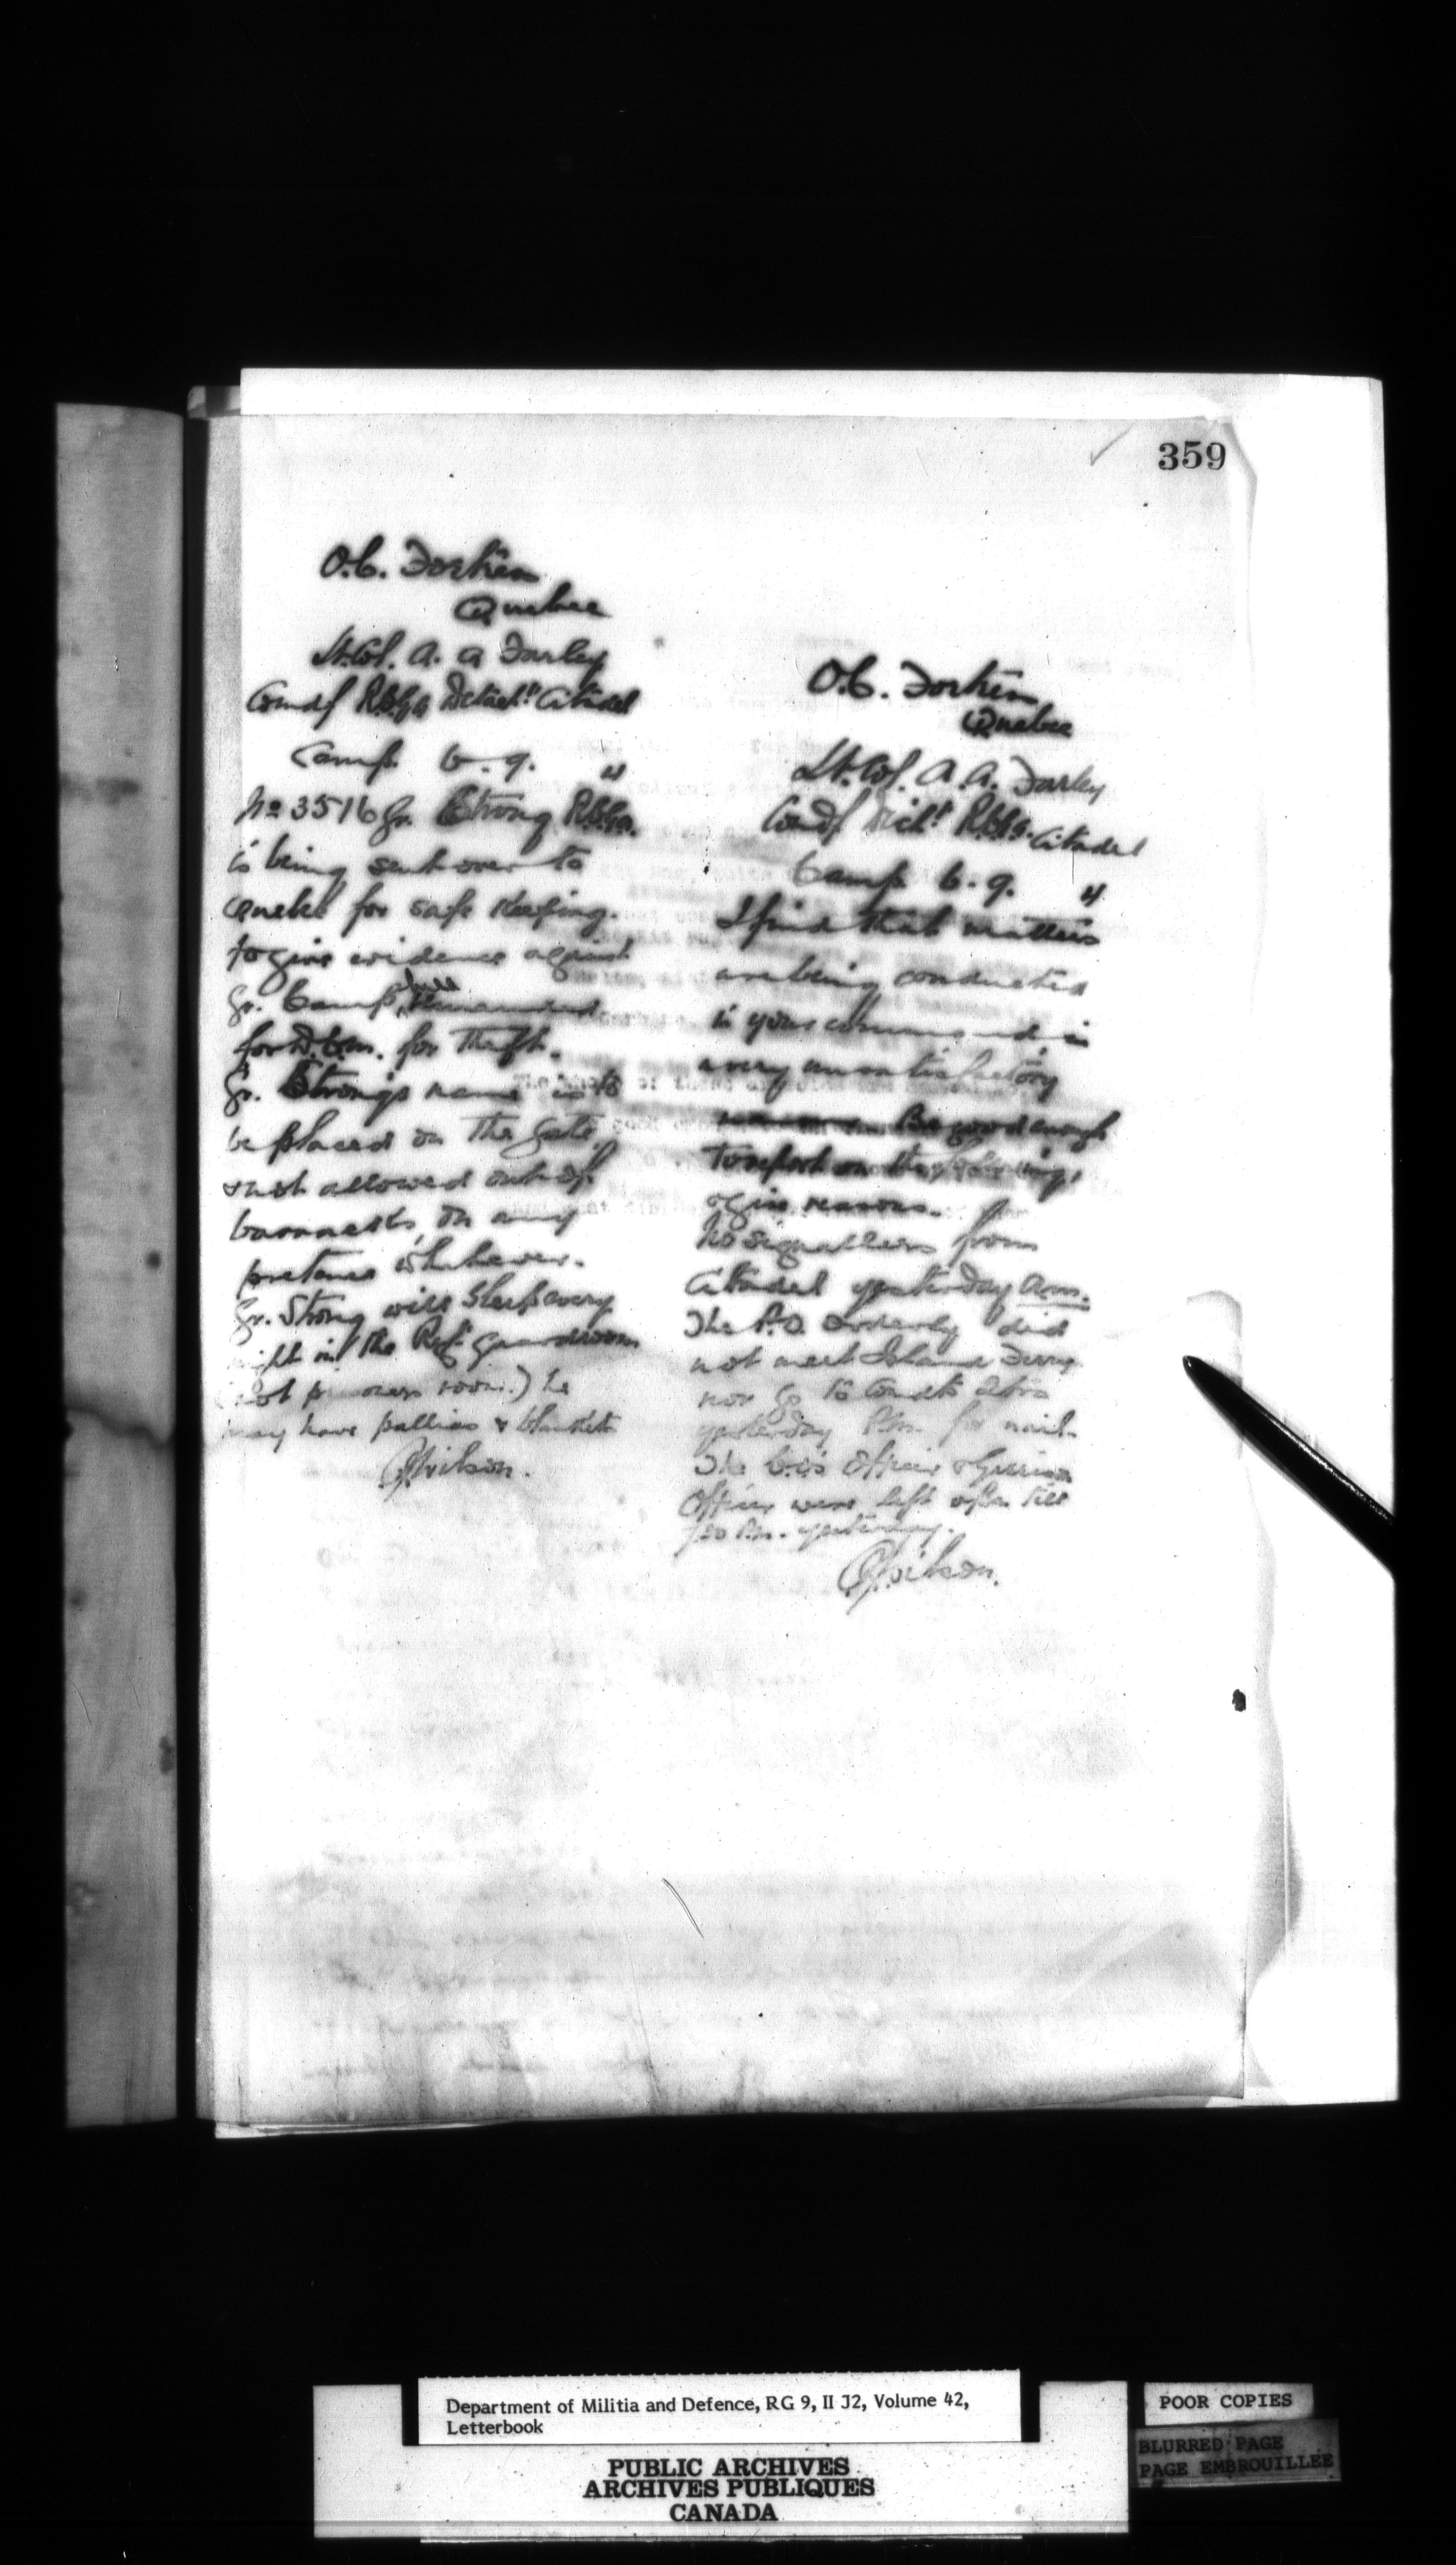 359
O.C. Fortress
Quebec
Lt. Col. A. A. Farley
Comdg R.C.G.A. Detacht. Citadel
Camp 6. 9.
No 3516 Gr. Strong R.C.G.A.
is being sent over to
Quebec for safe keeping.
to give evidence against
Gr. Camp,
for D.C.M. for theft.
Gr. Strong's name is to
be placed on the gate,
& not allowed out of
barracks, on any
pretence whatever.
Gr. Strong will sleep every
night in the Regt. guardroom
(not prisoners room.) he
may have pallias & blankets
Wilson.
O.C. Fortress
Quebec
Lt. Col. A. A. Farley
Comdg Detcht. R.C.G.A. Citadel
Camp 6. 9.
I find that matters
are being conducted
in your command, in
a very unsatisfactory
Be good enough
to report on the following,
& give reasons.
No signallers from
Citadel yesterday a.m.
The P.O. Orderly did
not meet Island Ferry
nor go to
yesterday P.m. for mail.
The Officer &
Officer were left till
P.m. yesterday.
Wilson.
Department of Militia and Defence, RG 9, II J2, Volume 42,
Letterbook
PUBLIC ARCHIVES
ARCHIVES PUBLIQUES
CANADA
POOR COPIES
BLURRED PAGE
PAGE EMBROUILLEE